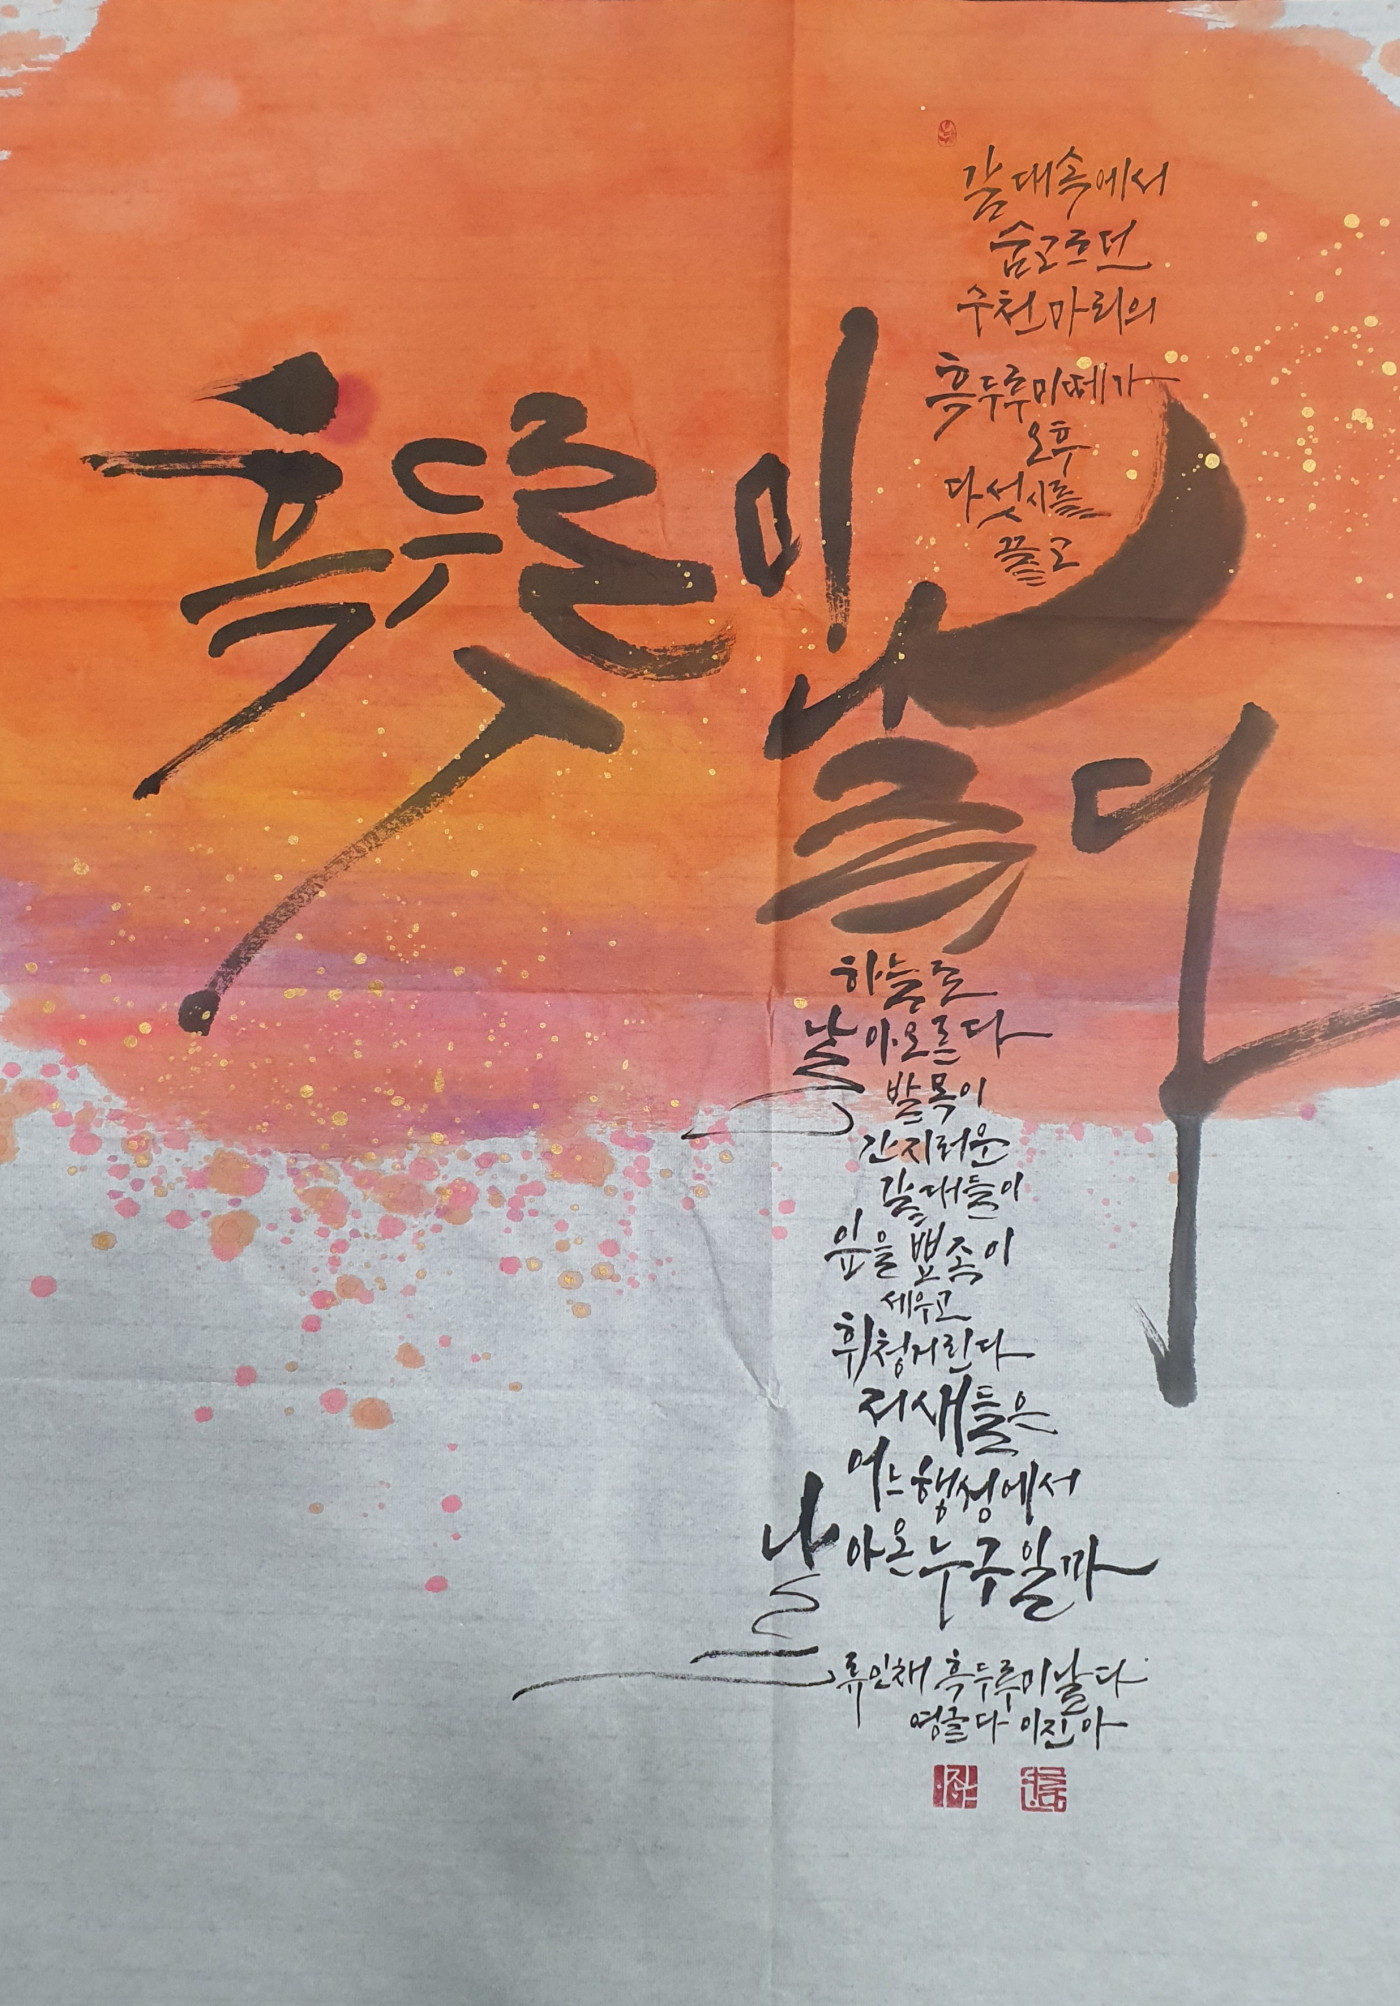 흑두루미
날다
갈대속에서
숨고르던
수천마리의
흑두루미떼가
오후
다섯시를
끌고
하늘로
날아오르다
발목이
간지러운
갈대들이
잎을 뾰족이
세우고
휘청거린다
저새들은
어느행성에서
날아온누구일까
류인채 흑두루미날다
영글다 이진아